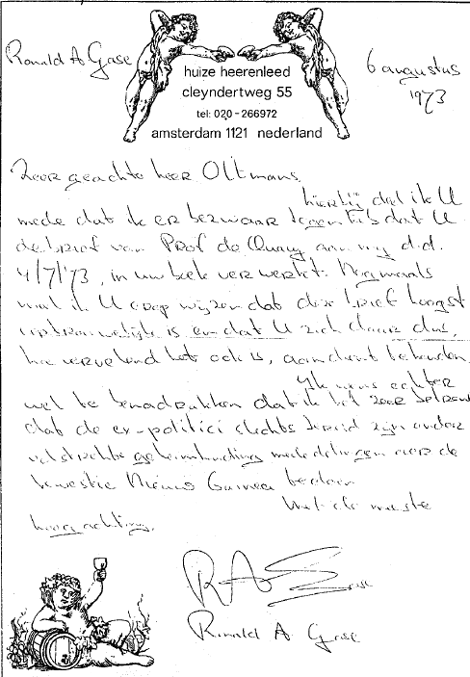 Ronald A Gase
6 augustus
1973
huize heerenleed
cleyndertweg 55
tel: 020-266972
amsterdam 1121 nederland
Zeer geachte heer Oltmans,
hierbij deel ik U
mede dat ik er bezwaar tegen heb dat U
de brief van Prof de Quay aan mij d.d.
4/7/'73, in uw boek verwerkt. Nogmaals
wil ik U erop wijzen dat deze brief hoogst
vertrouwelijk is en dat U zich daar dus,
hoe vervelend het ook is, aan dient te houden.
Ik wens echter
wel te benadrukken dat ik het zeer betreur
dat de ex-politici slechts bereid zijn onder
strikte geheimhouding mededelingen over de
kwestie Nieuw Guinea te doen
Met de meeste
hoogachting,
RA Gase
Ronald A. Gase